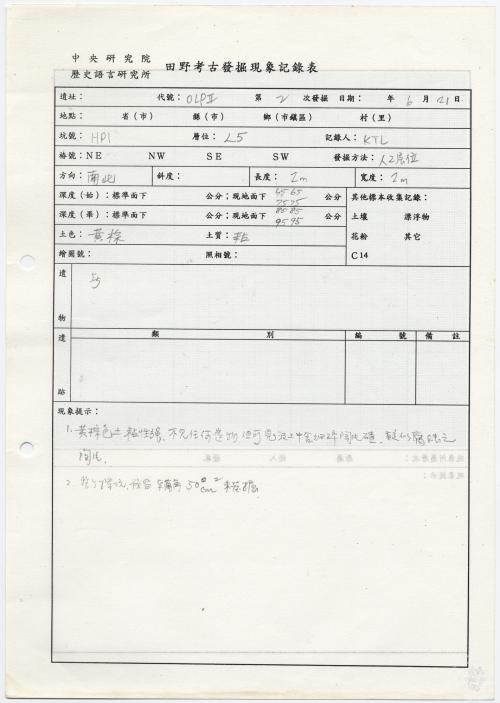 中央研究院
歷史語言研究所
田野考古發掘現象記錄表
遺址： 代號：OLPII 第 2 次發掘 日期： 年 6 月 21 日
地點： 省（市） 縣（市） 鄉（市鎮區） 村（里）
坑號：HP1 層位：L5 記錄人：KTL
格號：NE NW SE SW 發掘方法：人工層位
方向：南北 斜度： 長度：2m 寬度：2m
深度（始）：標準面下 公分；現地面下 65 65 75 75 公分 其他標本收集記錄：
深度（累）：標準面下 公分；現地面下 85 85 95 95 公分 土壤 漂浮物
土色：黃棕 土質：粘 花粉 其它
繪圖號： 照相號： C14
遺物
類別 編號 備註
遺跡
現象提示：
1. 黃棕色土 粘性強，不見任何遺物 但可見泥土中含細碎陶片碴，
陶片。
2. 50 cm² 未